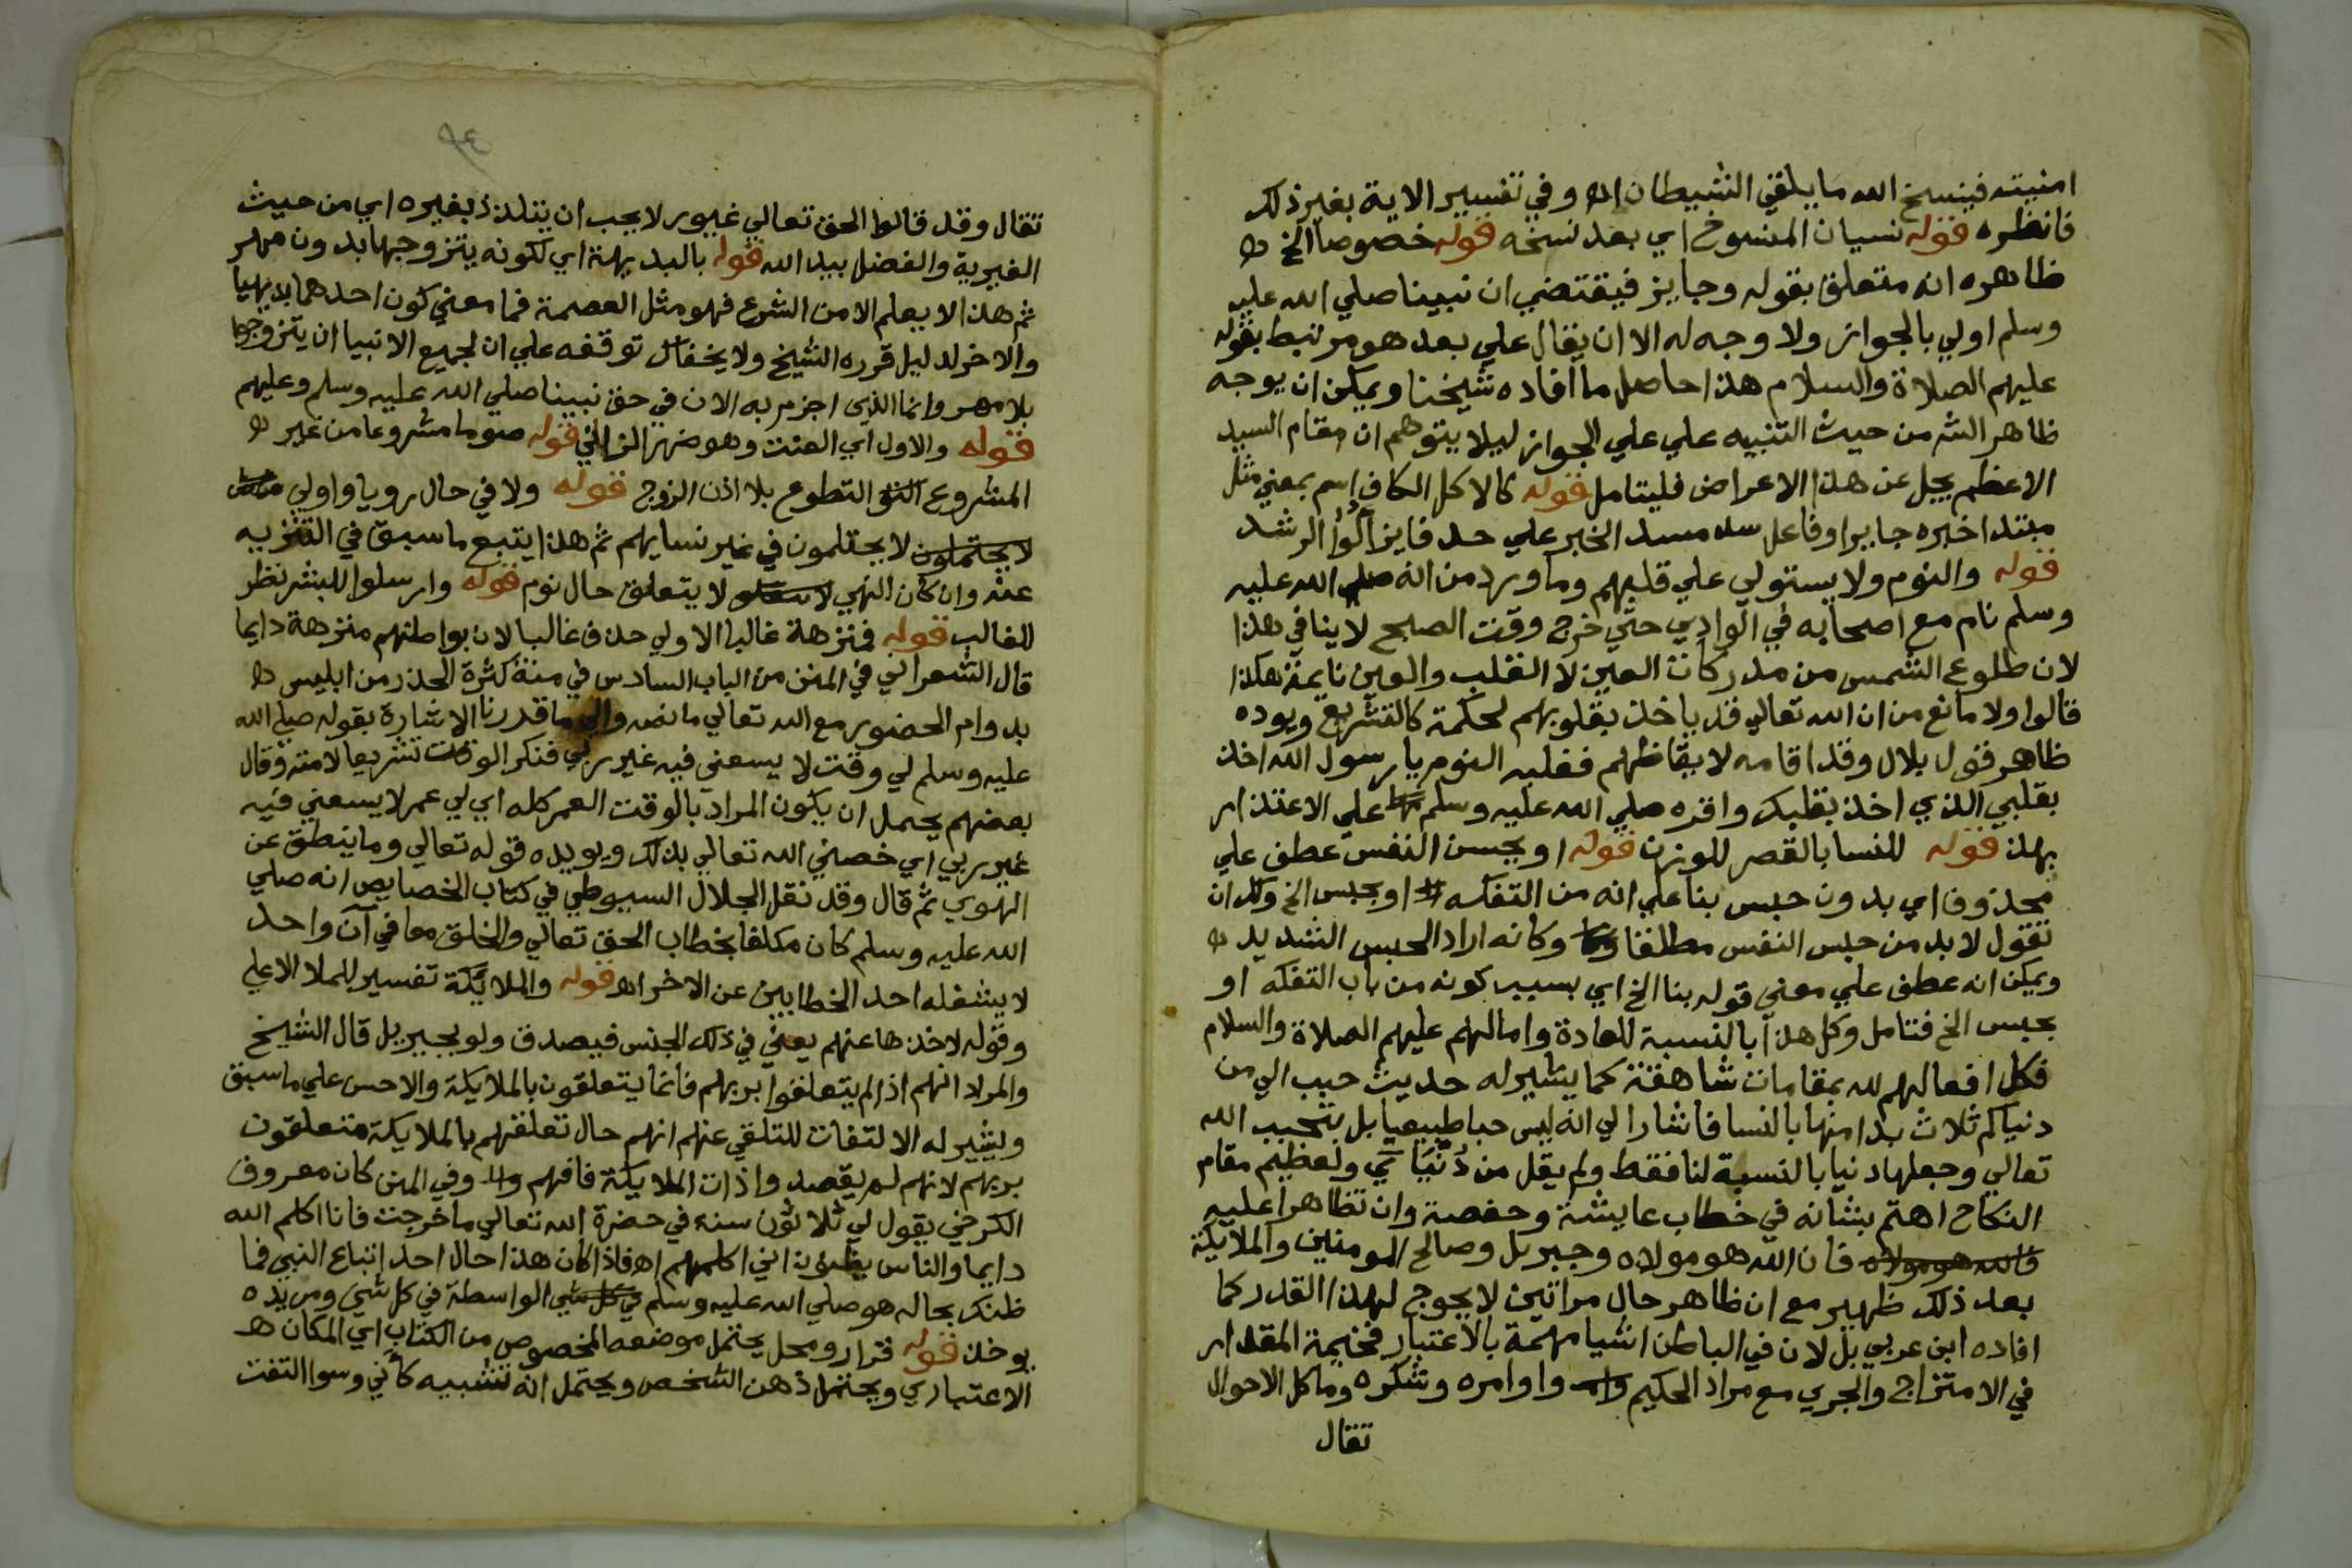 امنيته فينسخ الله ما يلقي الشيطان اه وفي تفسير الاية بغير ذلك
فانظره قوله نسيان المنسوخ اي بعد نسخه قوله خصوصا الخ
ظاهره انه متعلق بقوله وجايز فيقتضي ان نبينا صلي الله عليه
وسلم اولي بالجواز ولا وجه له الا ان يقال علي بعد هو مرتبط بقوله
عليهم الصلاة والسلام هذا حاصل ما افاده شيخنا ويمكن ان يوجه
ظاهر الش من حيث التنبيه علي علي الجواز ليلا يتوهم ان مقام السيد
الاعظم يجل عن هذا الاعراض فليتامل قوله كالاكل الكاف اسم بمعني مثل
مبتدا خبره جايرا وفاعل سد مسد الخبر علي حد فايز اولوا الرشد
قوله والنوم ولا يستولي علي قلبهم وما ورد من انه صلي الله عليه
وسلم نام مع اصحابه في الوادي حتي خرج وقت الصبح لا ينافي هذا
لان طلوع الشمس من مدركات العين لا القلب والعين نايمة هكذا
قالوا ولا مانع من ان الله تعالي قد ياخذ بقلوبهم لحكمة كالتشريع ويوده
ظاهر قول بلال وقد اقامه لايقاظهم فغلبه النوم يا رسول الله اخذ
بقلبي الذي اخذ بقلبك واقره صلي الله عليه وسلم علي الاعتذار
بهذ قوله للنسا بالقصر للوزن قوله او بحبس النفس عطف علي
محذوف اي بدون حبس بنا علي انه من التفكه او بحبس الخ ولك ان
تقول لا بد من حبس النفس مطلقا وكانه اراد الحبس الشديد
ويمكن انه عطف علي معني قوله بنا الخ اي بسبب كونه من باب التفكه او
بحبس الخ فتامل وكل هذا بالنسبة للعادة وامالهم عليهم الصلاة والسلام
فكل افعالهم لله بمقامات شاهقة كما يشير له حديث حبب الي من
دنياكم ثلاث بدا منها بالنسا فاشار الي انه ليس حبا طبيعيا بل بتحبيب الله
تعالي وجعلها دنيا بالنسبة لنا فقط ولم يقل من دنياي ولعظيم مقام
النكاح اهتم بشانه في خطاب عايشة وحفصة وان تظاهرا عليه
فالله هو مولاه فان الله هو مولاه وجبريل وصالح المومنين والملايكة
بعد ذلك ظهير مع ان ظاهر حال مراتين لا يحوج لهذا القدر كما
افاده ابن عربي بل لان في الباطن اشيا مهمة بالاعتبار فخيمة المقدار
في الامتزاج والجري مع مراد الحكيم واوامره وشكره وما كل الاحوال
تقال
٩٤
تقال وقد قالوا الحق تعالي غيور لا يحب ان يتلذذ بغيره اي من حيث
الغيرية والفضل بيد الله قوله بالبديهة اي لكونه يتزوجها بدون مهر
ثم هذا لا يعلم الا من الشرع فهو مثل العصمة فما معني كون احدهما بديهيا
والاخر لدليل قرره الشيخ ولا يخفاك توقفه علي ان لجميع الانبيا ان يتزوجوا
بلا مهر وانما الذي اجزم به الان في حق نبينا صلي الله عليه وسلم وعليهم
قوله والاول اي العنت وهو ضهر الزاني قوله صوما مشروعا من غير
المشروع التطوع بلا اذن الزوج قوله ولا في حال رويا واولي
لا يحتملون لا يحتلمون في غير نسايهم ثم هذا يتبع ما سبق في التنزيه
عنه وان كان النهي لا يتعلق حال نوم قوله وارسلوا للبشر نظر
للغالب قوله فنزهة غالبا الاولي حذف غالبا لان بواطنهم منزهة دايما
قال الشعراني في المنن من الباب السادس في منة كثرة الحذر من ابليس
بدوام الحضور مع الله تعالي ما نصه والي ما قدرنا الاشارة بقوله صلي الله
عليه وسلم لي وقت لا يسعني فيه غير ربي فنكر الوقت تشريعا لامته وقال
بعضهم يحمل ان يكون المراد بالوقت العمر كله اي لي عمر لا يسعني فيه
غير ربي اي خصني الله تعالي بذلك ويويده قوله تعالي وما ينطق عن
الهوي ثم قال وقد نقل الجلال السيوطي في كتاب الخصايص انه صلي
الله عليه وسلم كان مكلفا بخطاب الحق تعالي والخلق معا في آن واحد
لا يشغله احد الخطابين عن الاخر اه قوله والملايكة تفسير للملا الاعلي
وقوله لاخذها عنهم يعني في ذلك الجنس فيصدق ولو بجبريل قال الشيخ
والمراد انهم اذا لم يتعلقوا بربهم فانما يتعلقون بالملايكة والاحسن علي ما سبق
ويشير له الالتفات للتلقي عنهم انهم حال تعلقهم بالملايكة متعلقون
بربهم لانهم لم يقصدوا ذات الملايكة فافهم وفي المنن كان معروف
الكرخي يقول لي ثلاثون سنة في حضرة الله تعالي ما خرجت فانا اكلم الله
دايما والناس يظنون اني اكلمهم اه فاذا كان هذا حال احد اتباع النبي فما
ظنك بحاله هو صلي الله عليه وسلم في كل شي الواسطة في كل شي ومن يده
يوخذ قوله قرار ومحل يحتمل موضعه المخصوص من الكتاب اي المكان
الاعتباري ويحتمل ذهن الشخص ويحتمل انه تشبيه كاني وسوا التفت